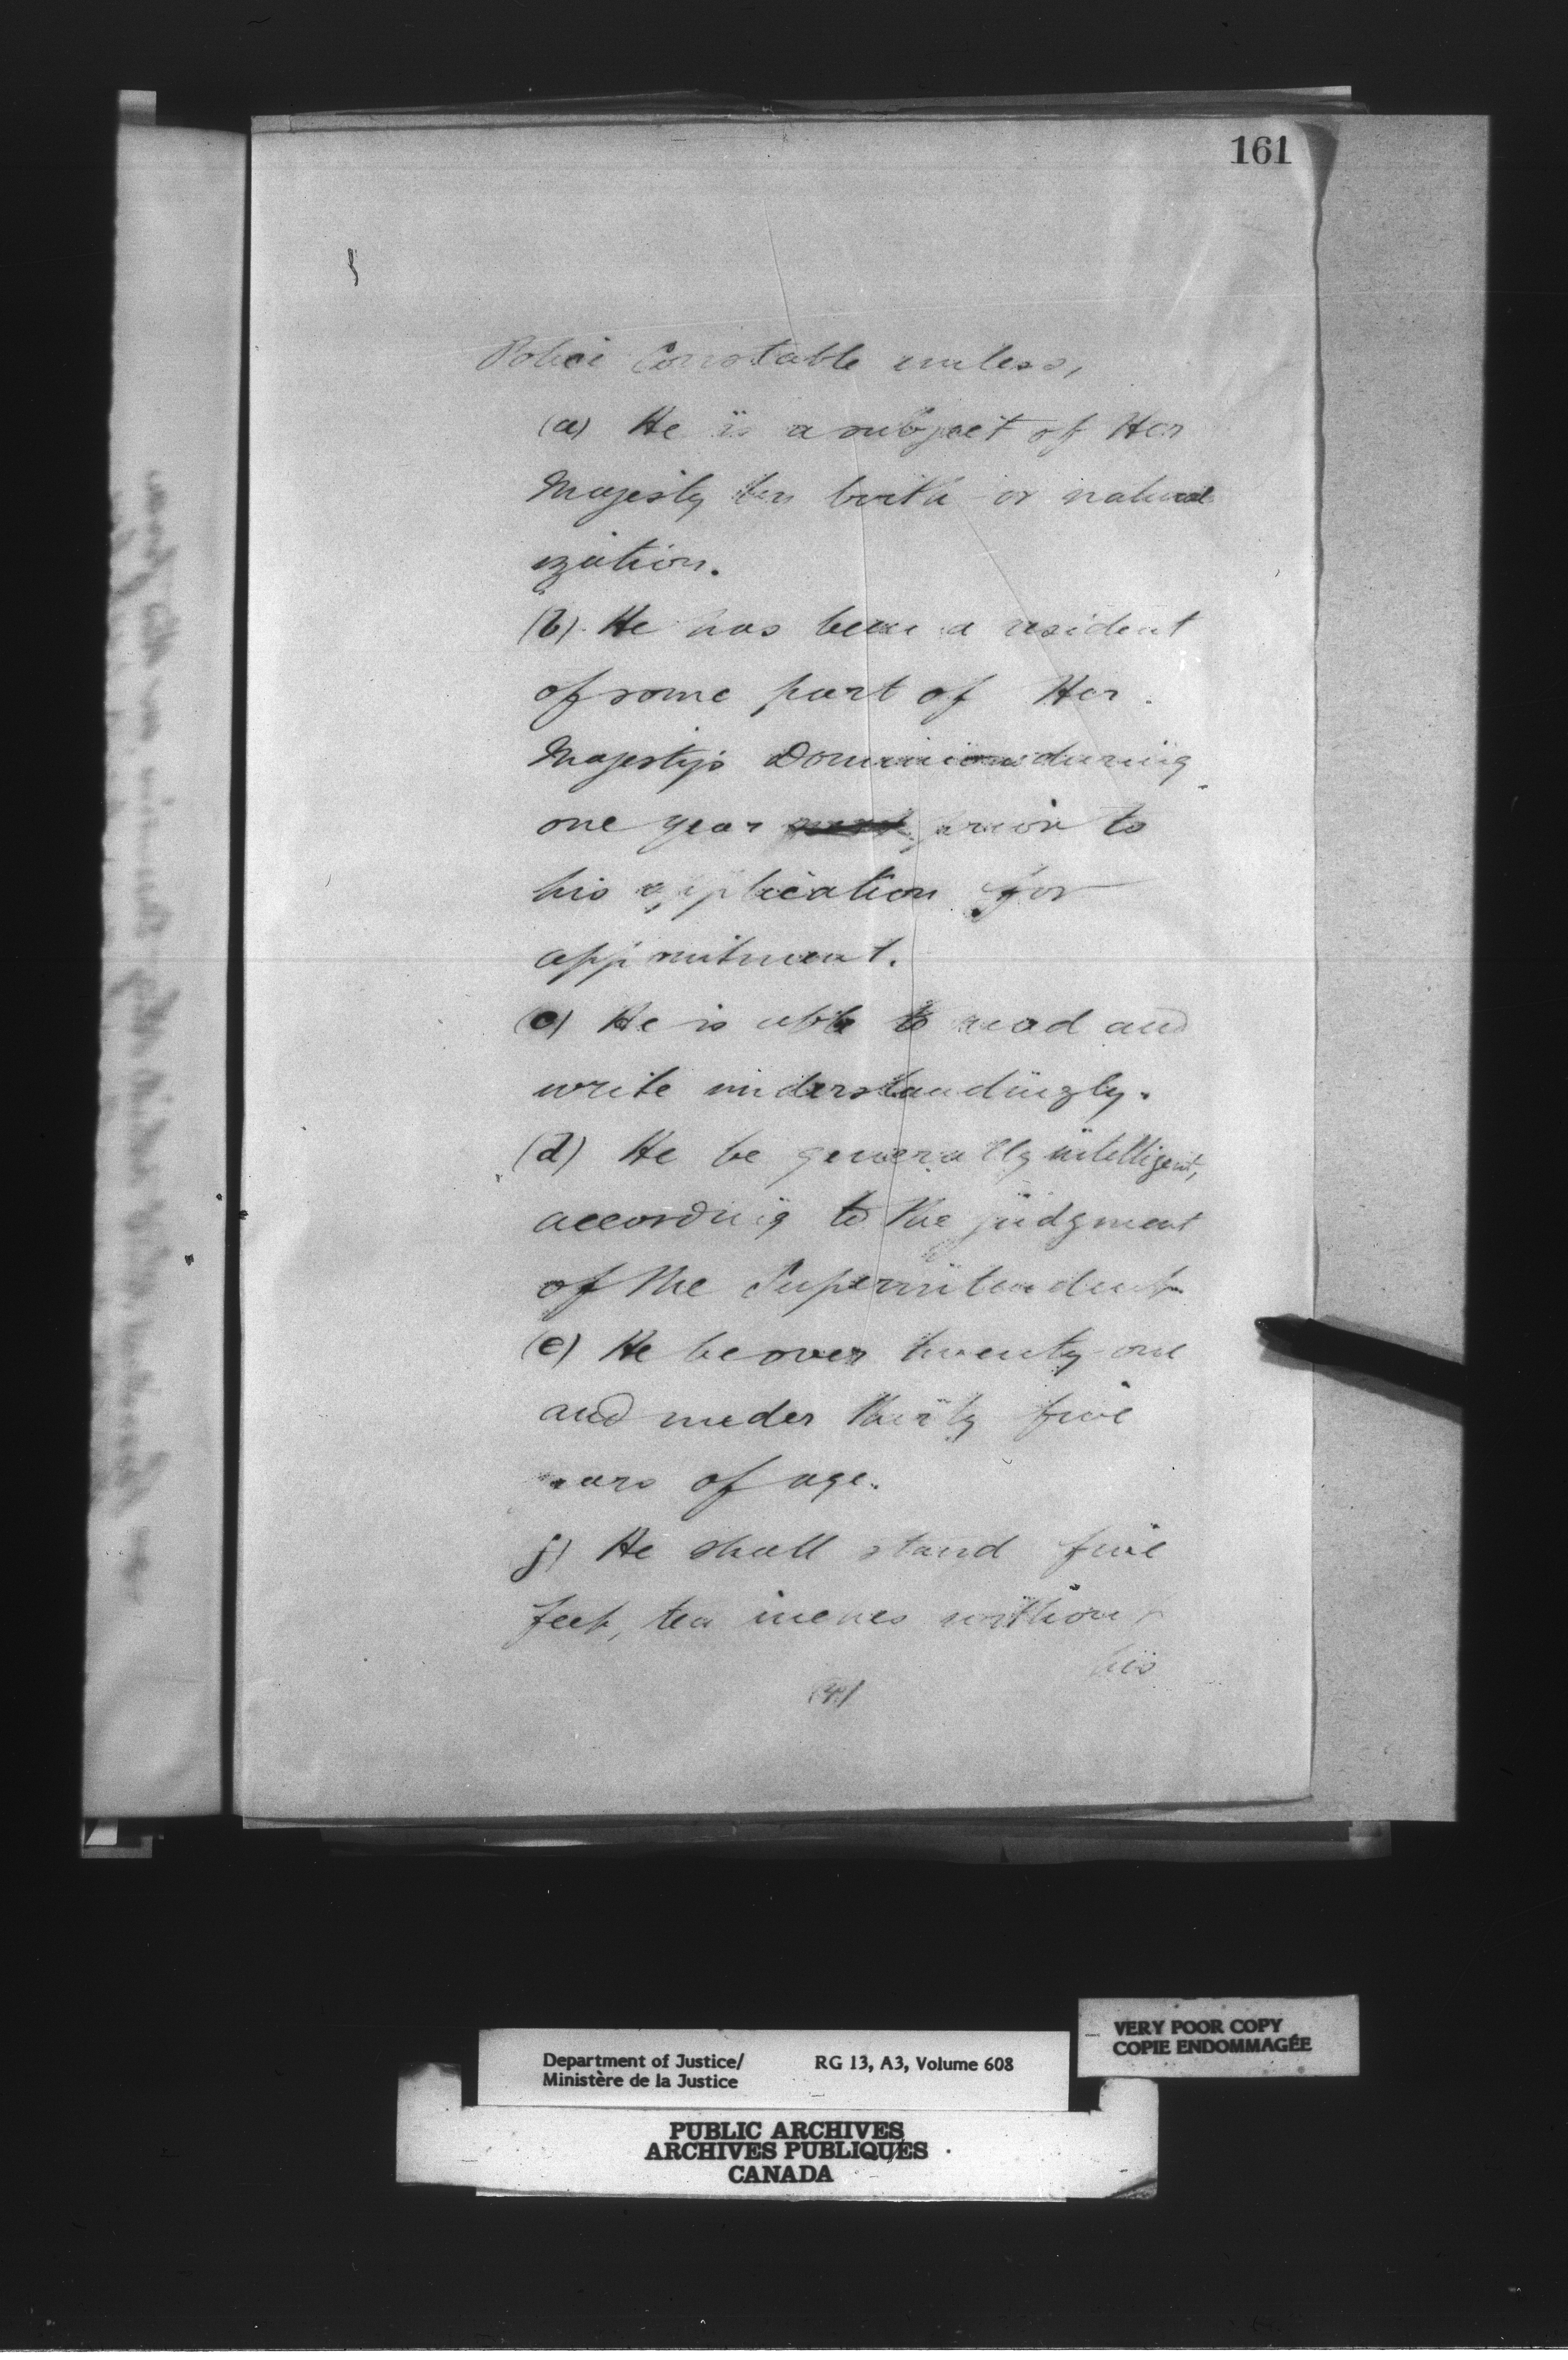 161
Police Constable unless,
(a) He is a subject of Her
Majesty by birth or natural
ization.
(b) He has been a resident
of some part of Her
Majesty's Dominions during
one year prior to
his application for
appointment.
(c) He is able to read and
write understandingly.
(d) He be generally intelligent,
according to the judgment
of the Superintendent
(e) He be over twenty one
and under thirty five
years of age.
f) He shall stand five
feet, ten inches without
his
(4)
VERY POOR COPY
COPIE ENDOMMAGÉE
Department of Justice/ RG 13, A3, Volume 608
Ministère de la Justice
PUBLIC ARCHIVES
ARCHIVES PUBLIQUES
CANADA